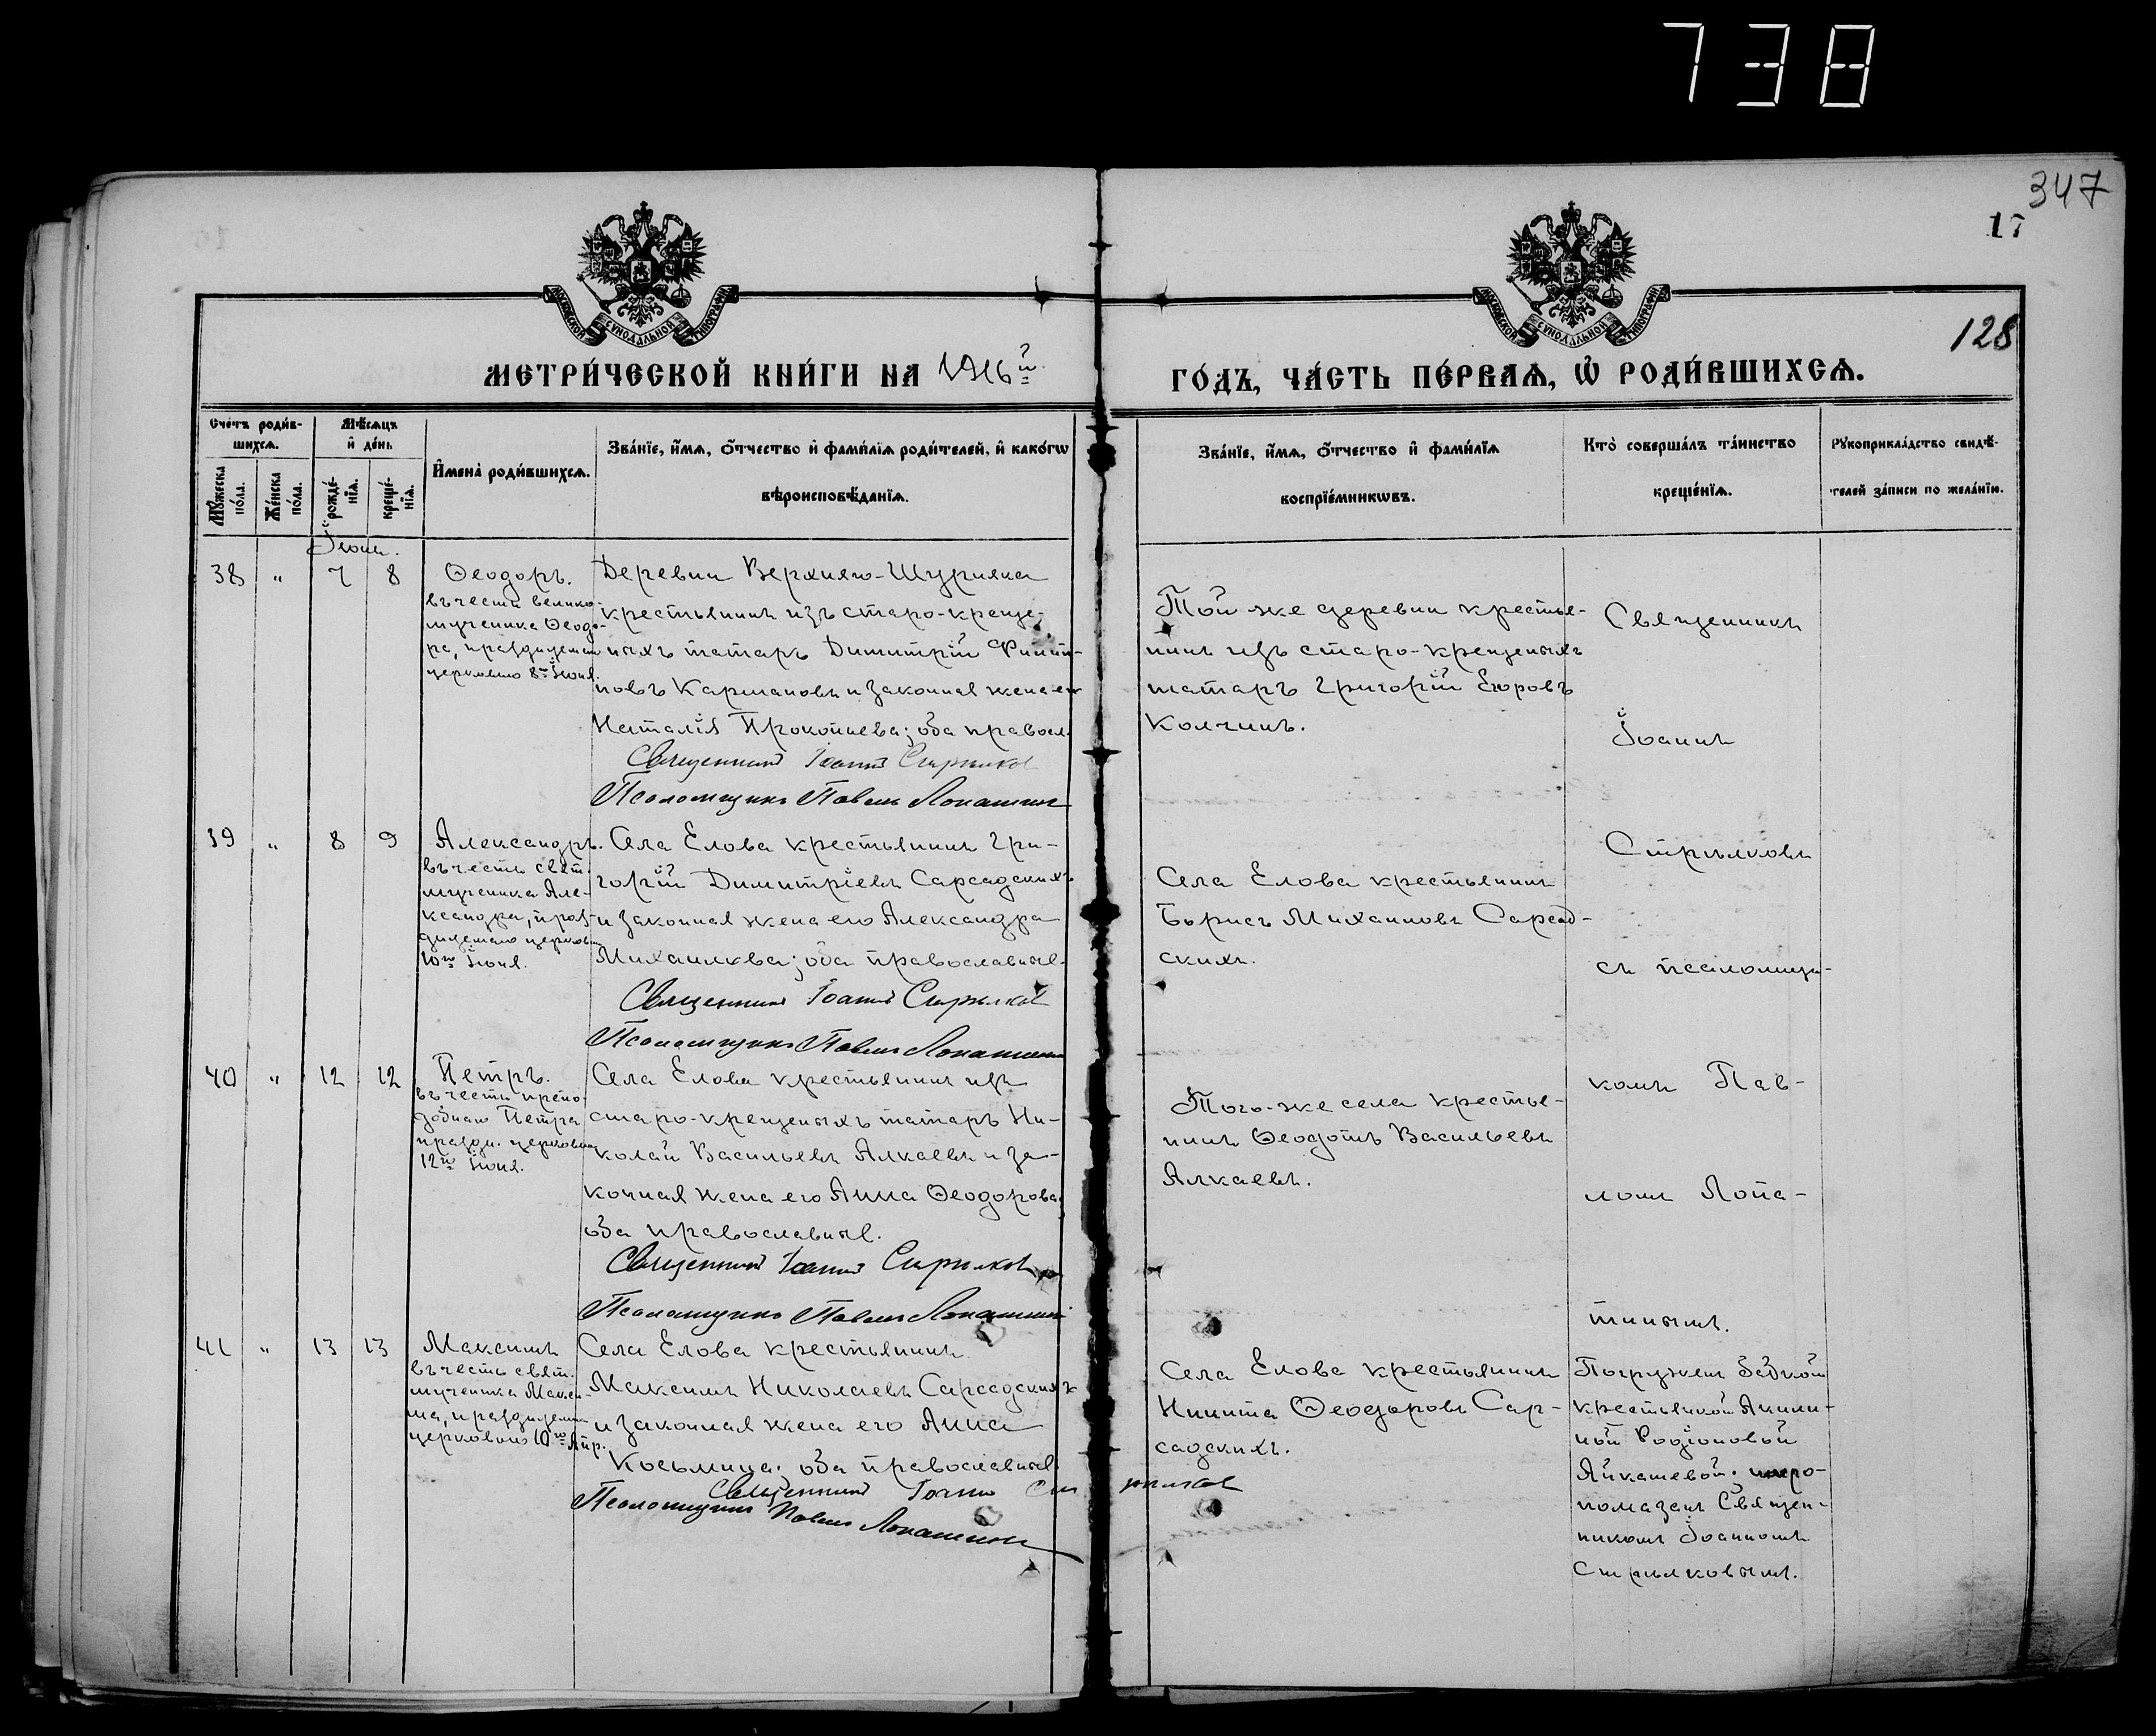 738
347
17
128
МОСКОВСКОЙ СѴНОДАЛЬНОЙ ТИПОГРАФІИ
МОСКОВСКОЙ СѴНОДАЛЬНОЙ ТИПОГРАФІИ
МЕТРИ́ЧЕСКОЙ КНИ́ГИ НА 1916й
ГО́ДЪ, ЧА́СТЬ ПЕ́РВАѦ, Ѡ҆ РОДИ́ВШИХСѦ.
Сче́тъ роди́в-
шихсѧ.
Мѣ́сѧцъ
и҆ де́нь
И҆мена̀ роди́вшихсѧ.
Зва́нїе, и҆́мѧ, ѻ҆́тчество и҆ фами́лїѧ роди́телей, и҆ како́гѡ
вѣроисповѣ́данїѧ.
Мꙋ́жеска по́ла.
Же́нска по́ла.
рожде́-нїѧ.
креще́-нїѧ.
Зва́нїе, и҆́мѧ, ѻ҆́тчество и҆ фами́лїѧ
воспрїе́мникѡвъ.
Кто̀ соверша́лъ та́инство
креще́нїѧ.
Рꙋкоприкла́дство свидѣ́-
телей за́писи по жела́нїю.
Іюнь.
38 " 7 8
Ѳеодоръ.
въ честь велико-
мученика Ѳеодо-
ра, празднуеман
церковію 8го Іюня.
Деревни Верхняго-Шурняка
крестьянинъ изъ старо-креще-
ныхъ татаръ Димитрій Филип-
повъ Кармановъ и законная жена его
Наталія Прокопьева; оба правосл.
Священникъ Іоаннъ Стрѣлковъ
Псаломщикъ Павелъ Лопатинъ
Той-же деревни крестья-
нинъ изъ старо-крещеныхъ
татаръ Григорій Егоровъ
Колчинъ.
Священникъ
Іоаннъ
39 " 8 9
Александръ.
въ честь свят.
мученика Але-
ксандра, праз-
днуемаго церковью
10го Іюня.
Села Елова крестьянинъ Гри-
горій Димитріевъ Сарсадскихъ
и законная жена его Александра
Михаилова; оба православные.
Священникъ Іоаннъ Стрѣлковъ
Псаломщикъ Павелъ Лопатинъ
Села Елова крестьянинъ
Борисъ Михаиловъ Сарсад-
скихъ.
Стрѣлковъ
съ псаломщи-
40 " 12 12
Петръ.
въ честь препо-
добнаго Петра
праздн. церковью
12го Іюня.
Села Елова крестьянинъ изъ
старо-крещеныхъ татаръ Ни-
колай Васильевъ Алкаевъ и за-
конная жена его Анна Ѳеодорова;
оба православные.
Священникъ Іоаннъ Стрѣлковъ
Псаломщикъ Павелъ Лопатинъ
Того-же села крестья-
нинъ Ѳеодотъ Васильевъ
Алкаевъ.
комъ Пав-
ломъ Лопа-
тинымъ.
41 " 13 13
Максимъ
въ честь свят.
мученика Макси-
ма, празднуемаго
церковью 10го Апр.
Села Елова крестьянинъ
Максимъ Николаевъ Сарсадскихъ
и законная жена его Анна
Косьмина; оба православные.
Священникъ Іоаннъ Стрѣлковъ
Псаломщикъ Павелъ Лопатинъ
Села Елова крестьянинъ
Никита Ѳеодоровъ Сар-
садскихъ.
Погруженъ бабкой
крестьянкой Акили-
ной Родіоновой
Айкашевой; миро-
помазанъ Священ-
никомъ Іоанномъ
Стрѣлковымъ.